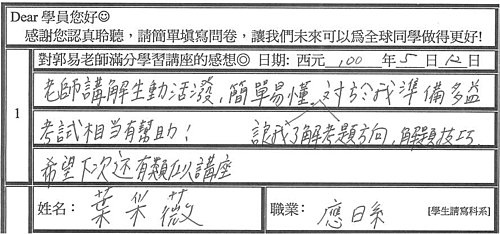 Dear 學員您好☺
感謝您認真聆聽，請簡單填寫問卷，讓我們未來可以爲全球同學做得更好!
1
對郭易老師滿分學習講座的感想◎ 日期: 西元 100 年 5 月 12 日
老師講解生動活潑，簡單易懂。對於我準備多益
考試相当有幫助！ 讓我了解考題方向，解題技巧
希望下次还有類似講座
姓名： 葉采薇 職業： 應日系 [學生請寫科系]